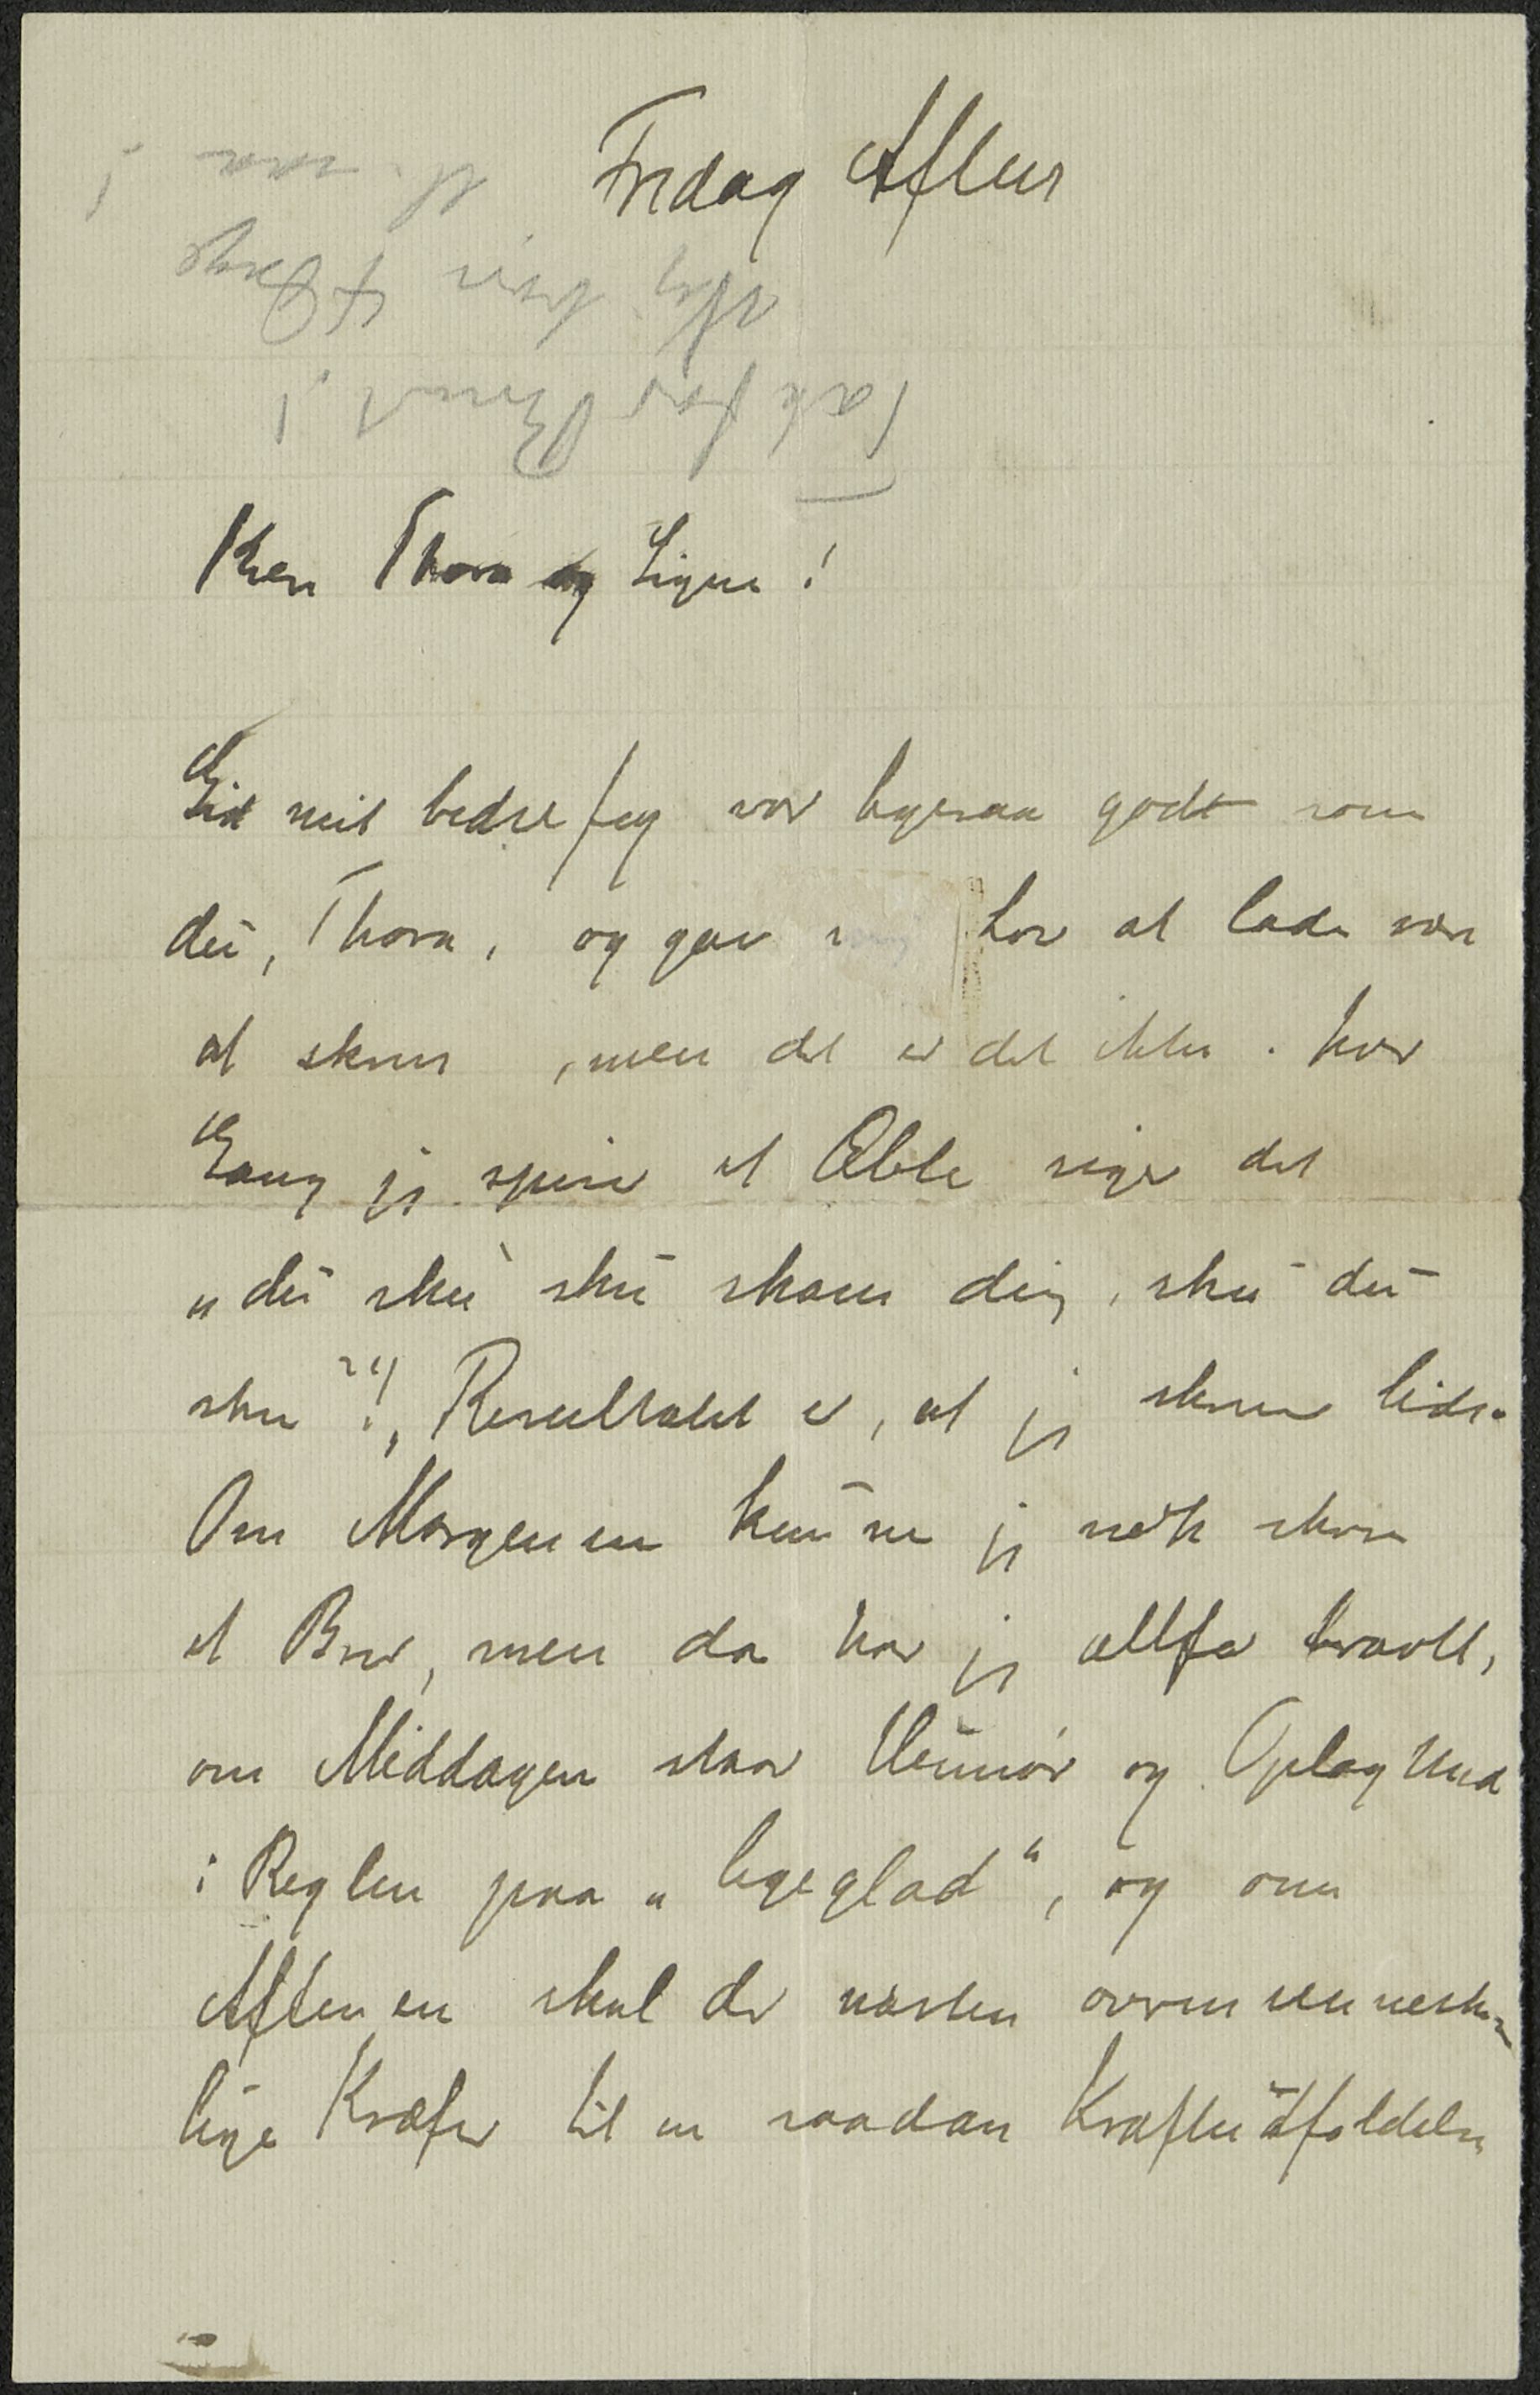 Fredag Aften
Tak for Brevet!
Nej hvor
Kære Thora og Signe!
Gid mit bedre Jeg var ligesaa godt som
du, Thora, og gav mig Lov at lade være
at skrive, men det er det ikke. Hver
Gang jeg spiser et Æble siger det
„du sku' sku skam dig, sku du
sku"!, Resultatet er, at jeg skriver lidt.
Om Morgenen kunne jeg nok skrive
et Brev, men da har jeg altfor travlt,
om Middagen staar Humør og Oplagthed
i Reglen paa „ligeglad", og om
Aftenen skal der næsten overmenneske-
lige Kræfter til en saadan Kraftudfoldelse